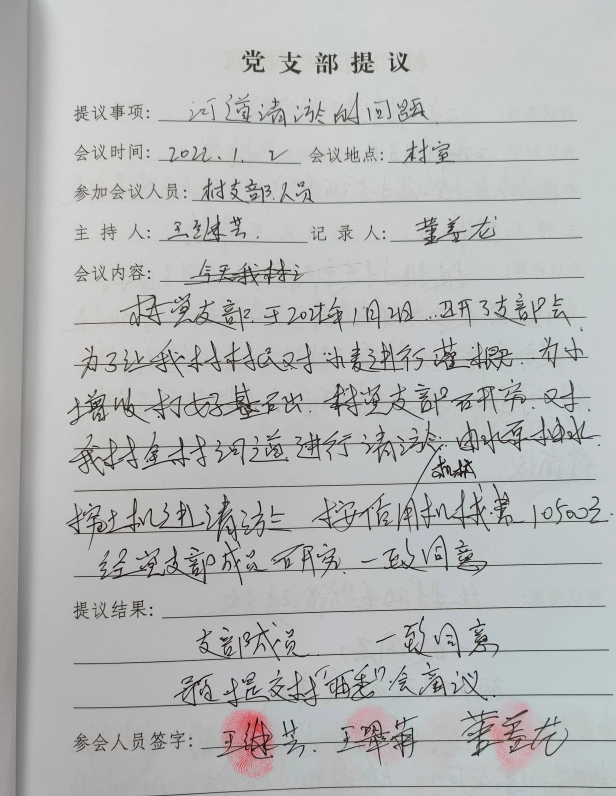 党支部提议
提议事项：河道清淤的问题
会议时间：2022.1.2 会议地点：村室
参加会议人员：村支部人员
主持人：王继芸. 记录人：董姜龙
会议内容：今天我村
村党支部于2022年1月2日.召开了支部会
为了让我村村民对小麦进行灌溉.为小
增收打好基石出.村党支部研究.对
我村全村河道进行清淤.由水泵抽水.
机械
挖土机扎清淤 按信用机械 10500元.
经党支部成员研究.一致同意
提议结果：
支部成员 一致同意
提交村“两委”会商议.
参会人员签字：王继芸.王翠 董姜龙